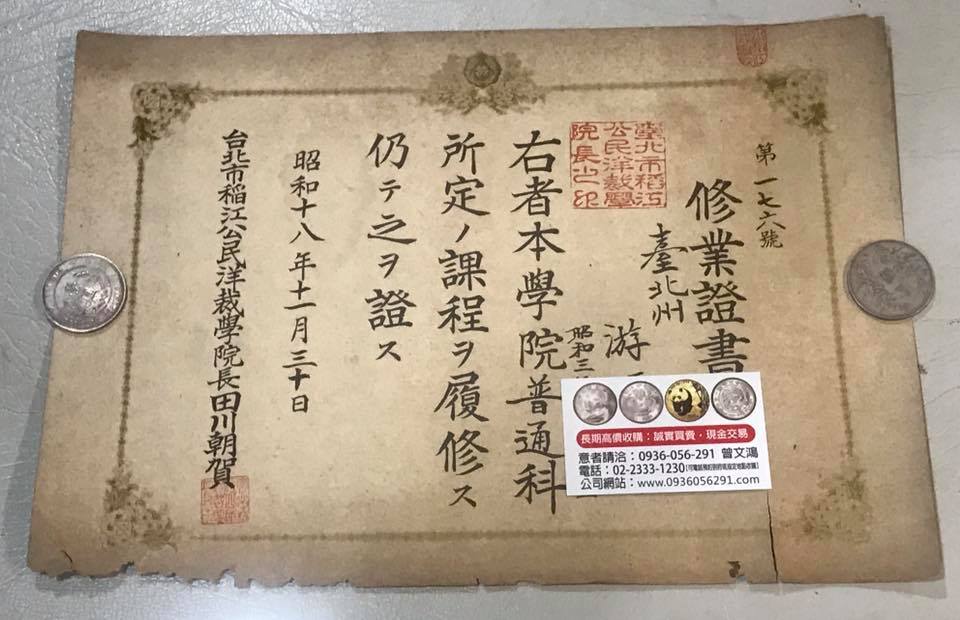 第一七六號
修業證書
臺北州
游
昭和三
臺北市稻江
公民洋裁學
院長之印
右者本學院普通科
所定ノ課程ヲ履修ス
仍テ之ヲ證ス
昭和十八年十一月三十日
台北市稻江公民洋裁學院長田川朝賀
長期高價收購：誠實買賣・現金交易
意者請洽：0936-056-291 曾文鴻
電話：02-2333-1230
公司網站：www.0936056291.com